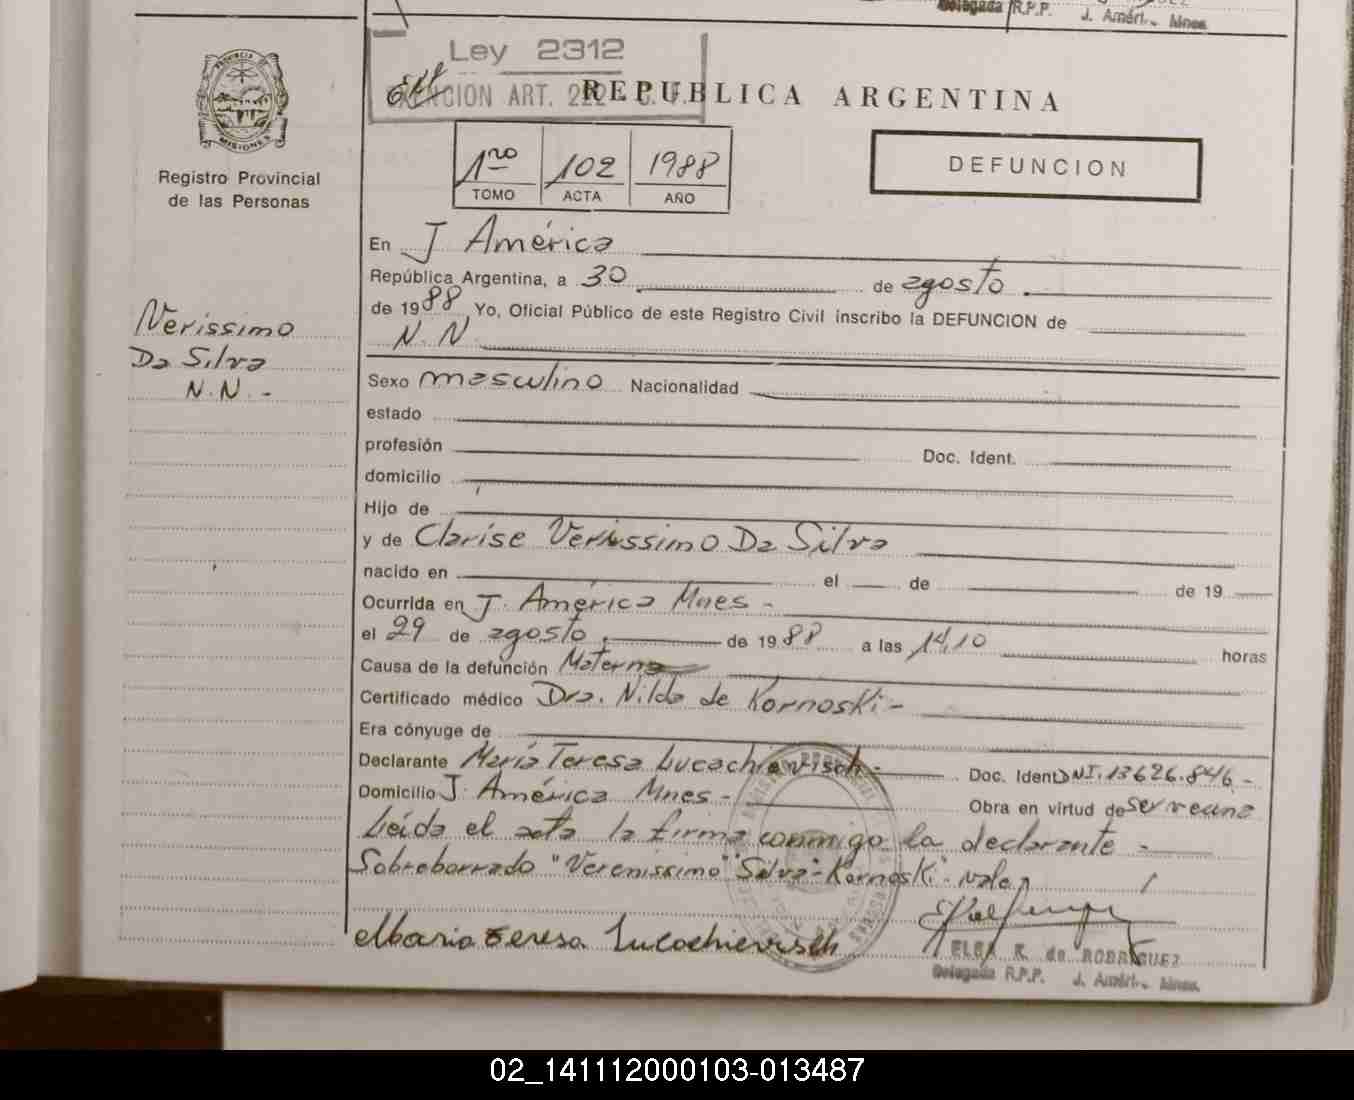 Delegada R.P.P. J. Améri., Mnes.
Ley 2312
EXENCION ART. 222 - C. F.
REPUBLICA ARGENTINA
PROVINCIA DE
MISIONES
Registro Provincial
de las Personas
1ro 102 1988
TOMO ACTA AÑO
DEFUNCION
En J América
República Argentina, a 30 de agosto
de 1988 Yo, Oficial Público de este Registro Civil inscribo la DEFUNCION de
N. N.
Verissimo
Da Silva
N. N. -
Sexo masculino Nacionalidad
estado
profesión Doc. Ident.
domicilio
Hijo de
y de Clarise Verissimo Da Silva
nacido en el de de 19
Ocurrida en J. América Mnes -
el 29 de agosto de 1988 a las 14,10 horas
Causa de la defunción Materna
Certificado médico Dra. Nilda de Kornoski -
Era cónyuge de
Declarante María Teresa Lucachievisch - Doc. Ident DNI. 13626.846 -
Domicilio J. América Mnes - Obra en virtud de
Leída el acta la firma conmigo la declarante -
Sobreborrado "Verenissimo" "Silva" - Kornoski - vale
Maria Teresa Lucachievisch
ELSA R. de RODRIGUEZ
Delegada R.P.P. J. Améri., Mnes.
02_141112000103-013487